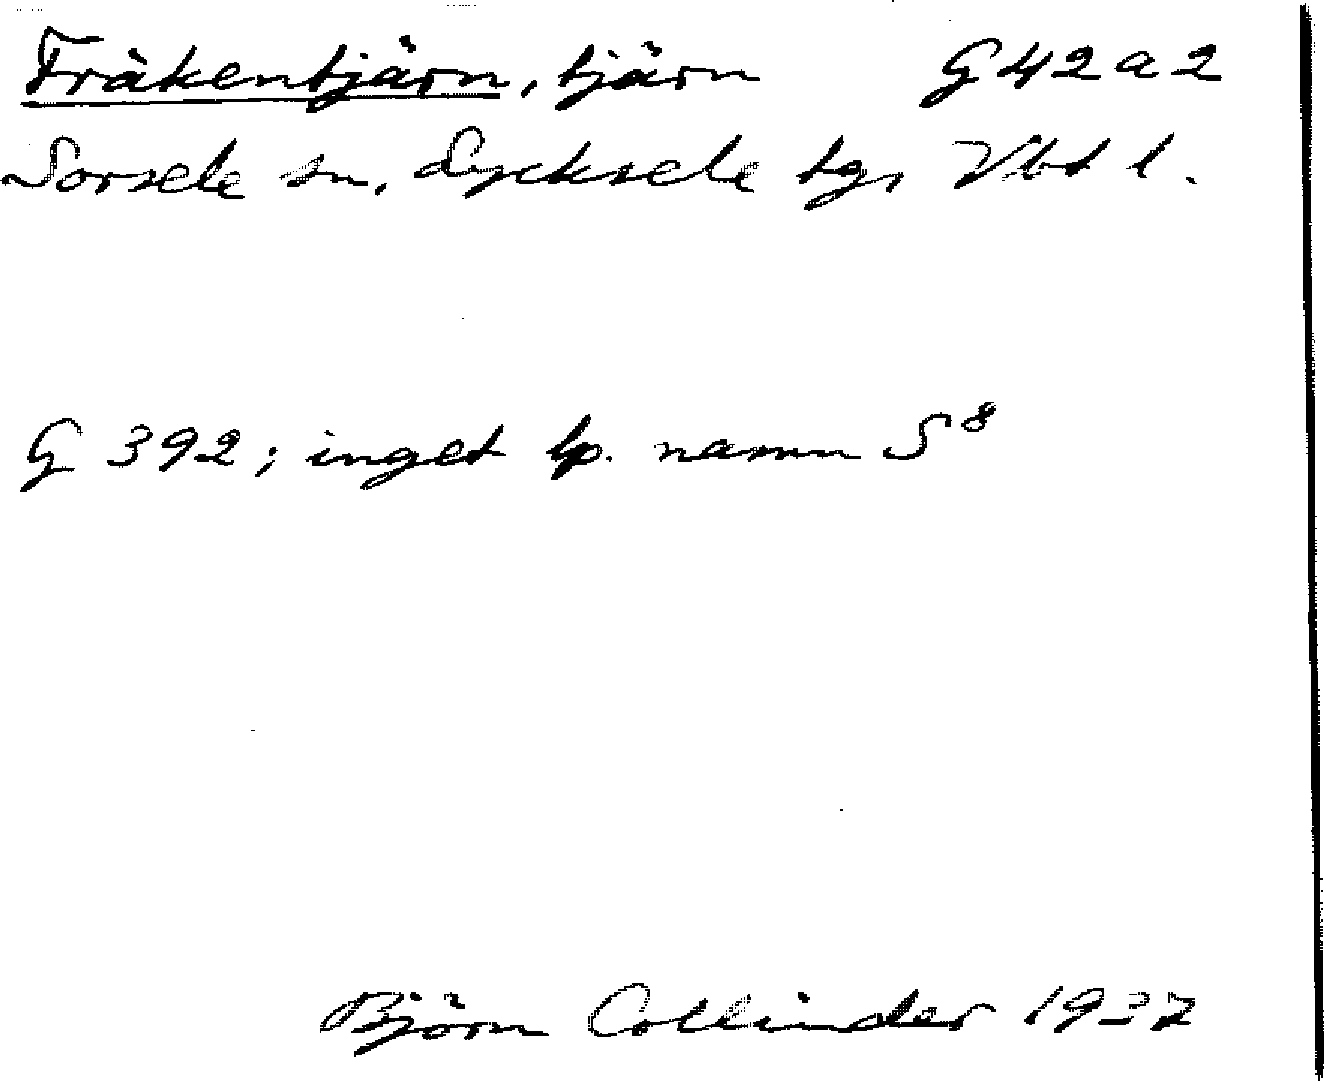 Fräkentjärn, tjärn G 42 a 2
Sorsele sn, Lycksele tg, Vbt l.
G 392; inget lp. namn S⁸
Björn Collinder 1937